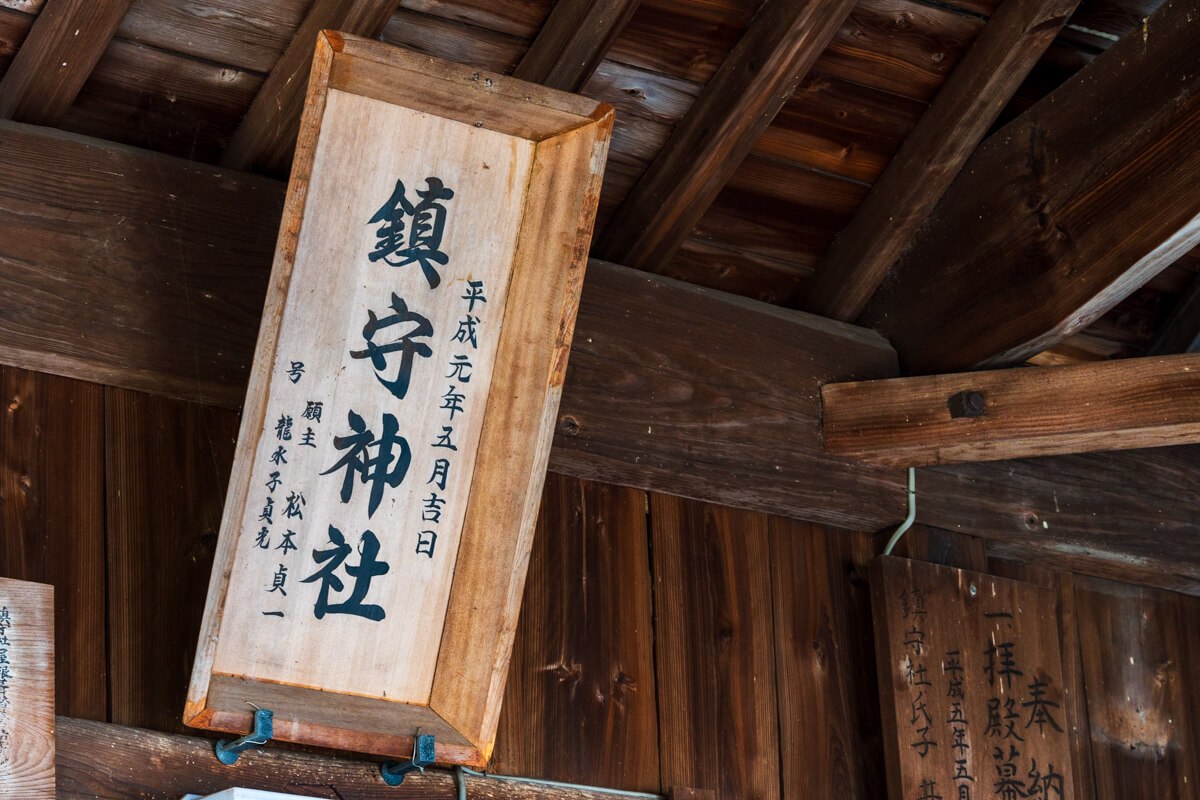 平成元年五月吉日
鎮守神社
願主 松本貞一
号 龍水子貞光
奉納
一拝殿幕
平成五年五月
鎮守社氏子